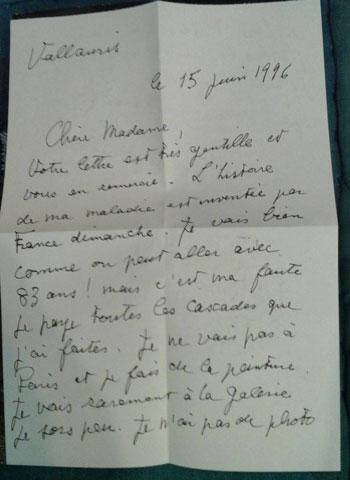 Vallauris
le 15 juin 1996
Chère Madame,
Votre lettre est très gentille et
vous en remercie. L'histoire
de ma maladie est inventée par
France dimanche. Je vais bien
comme on peut aller avec
83 ans ! mais c'est ma faute
je paye toutes les cascades que
j'ai faites. Je ne vais pas à
Paris et je fais de la peinture.
Je vais rarement à la Galerie
Je sors peu. Je n'ai pas de photo